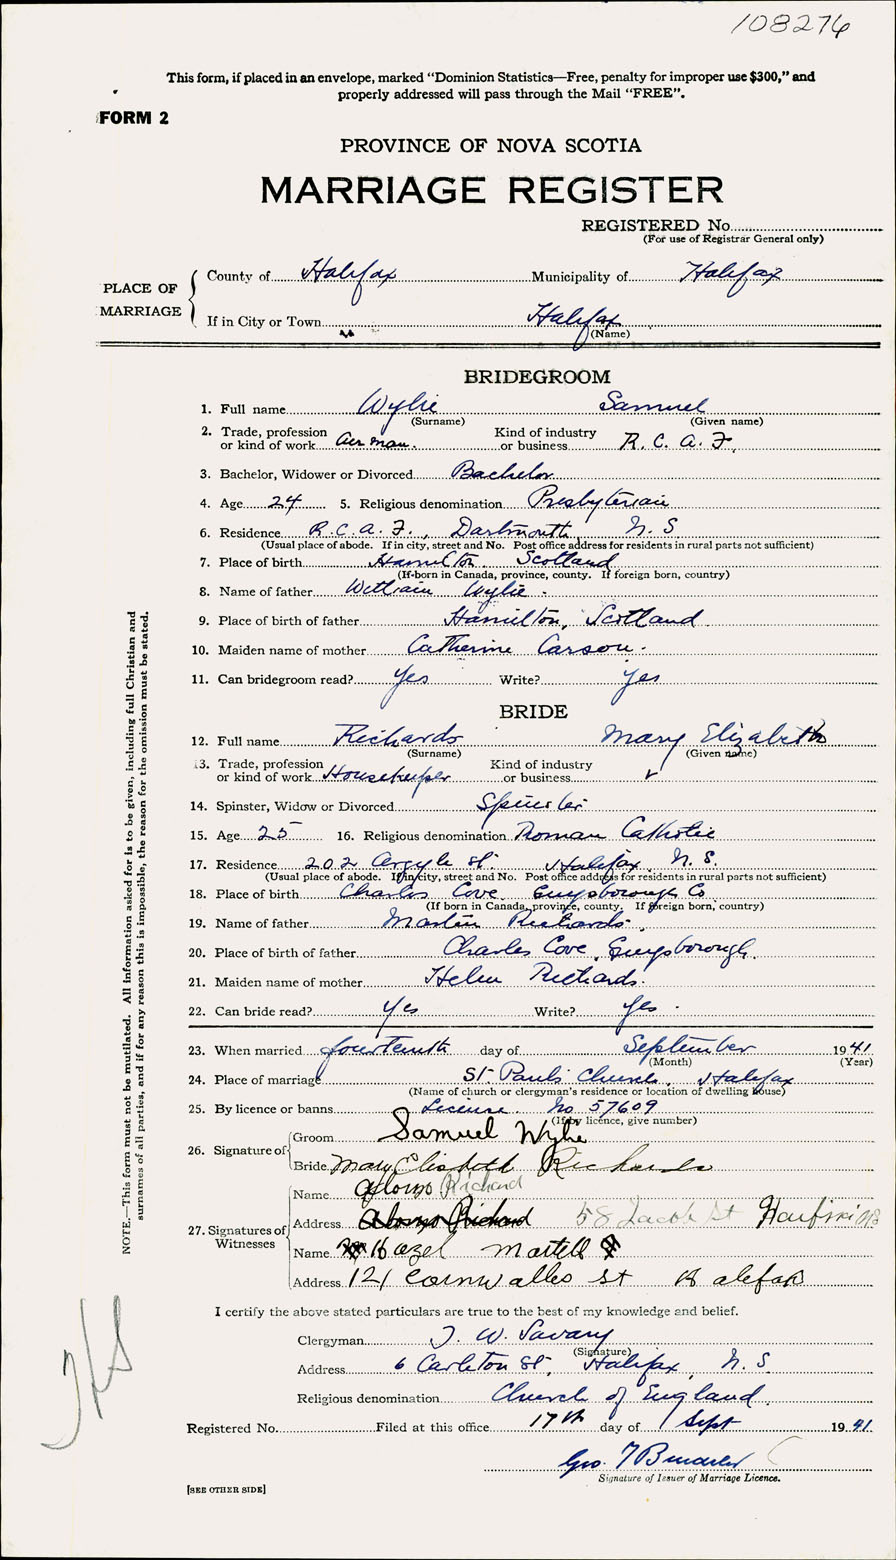 108276
This form, if placed in an envelope, marked "Dominion Statistics—Free, penalty for improper use $300," and
properly addressed will pass through the Mail "FREE".
FORM 2
PROVINCE OF NOVA SCOTIA
MARRIAGE REGISTER
REGISTERED No.
(For use of Registrar General only)
PLACE OF MARRIAGE
County of Halifax Municipality of Halifax
If in City or Town Halifax
(Name)
BRIDEGROOM
1. Full name Wylie Samuel
(Surname) (Given name)
2. Trade, profession or kind of work Airman. Kind of industry or business R.C.A.F.
3. Bachelor, Widower or Divorced Bachelor
4. Age 24 5. Religious denomination Presbyterian
6. Residence R.C.A.F., Dartmouth, N.S
(Usual place of abode. If in city, street and No. Post office address for residents in rural parts not sufficient)
7. Place of birth Hamilton Scotland
(If born in Canada, province, county. If foreign born, country)
8. Name of father William Wylie.
9. Place of birth of father Hamilton, Scotland
10. Maiden name of mother Catherine Carson.
11. Can bridegroom read? Yes Write? Yes
BRIDE
12. Full name Richards Mary Elizabeth
(Surname) (Given name)
13. Trade, profession or kind of work Housekeeper Kind of industry or business
14. Spinster, Widow or Divorced Spinster
15. Age 25 16. Religious denomination Roman Catholic
17. Residence 202 Argyle St. Halifax, N.S.
(Usual place of abode. If in city, street and No. Post office address for residents in rural parts not sufficient)
18. Place of birth Charles Cove Guysborough Co
(If born in Canada, province, county. If foreign born, country)
19. Name of father Martin Richards.
20. Place of birth of father Charles Cove, Guysborough.
21. Maiden name of mother Helen Richards.
22. Can bride read? Yes Write? Yes.
23. When married fourteenth day of September 1941
(Month) (Year)
24. Place of marriage St. Paul's Church, Halifax
(Name of church or clergyman's residence or location of dwelling house)
25. By licence or banns License. No 57609
(If by licence, give number)
26. Signature of
Groom Samuel Wylie
Bride Mary Elisabeth Richards
27. Signatures of Witnesses
Name Richard
Address 58 Jacob St
Name Hazel Martell
Address 121 Cornwalles St Halifax
I certify the above stated particulars are true to the best of my knowledge and belief.
Clergyman T. W. Savary
(Signature)
Address 6 Carleton St., Halifax, N.S.
Religious denomination Church of England.
Registered No. Filed at this office 17th day of Sept 1941.
Geo.
Signature of Issuer of Marriage Licence.
[SEE OTHER SIDE]
NOTE.—This form must not be mutilated. All information asked for is to be given, including full Christian and
surnames of all parties, and if for any reason this is impossible, the reason for the omission must be stated.